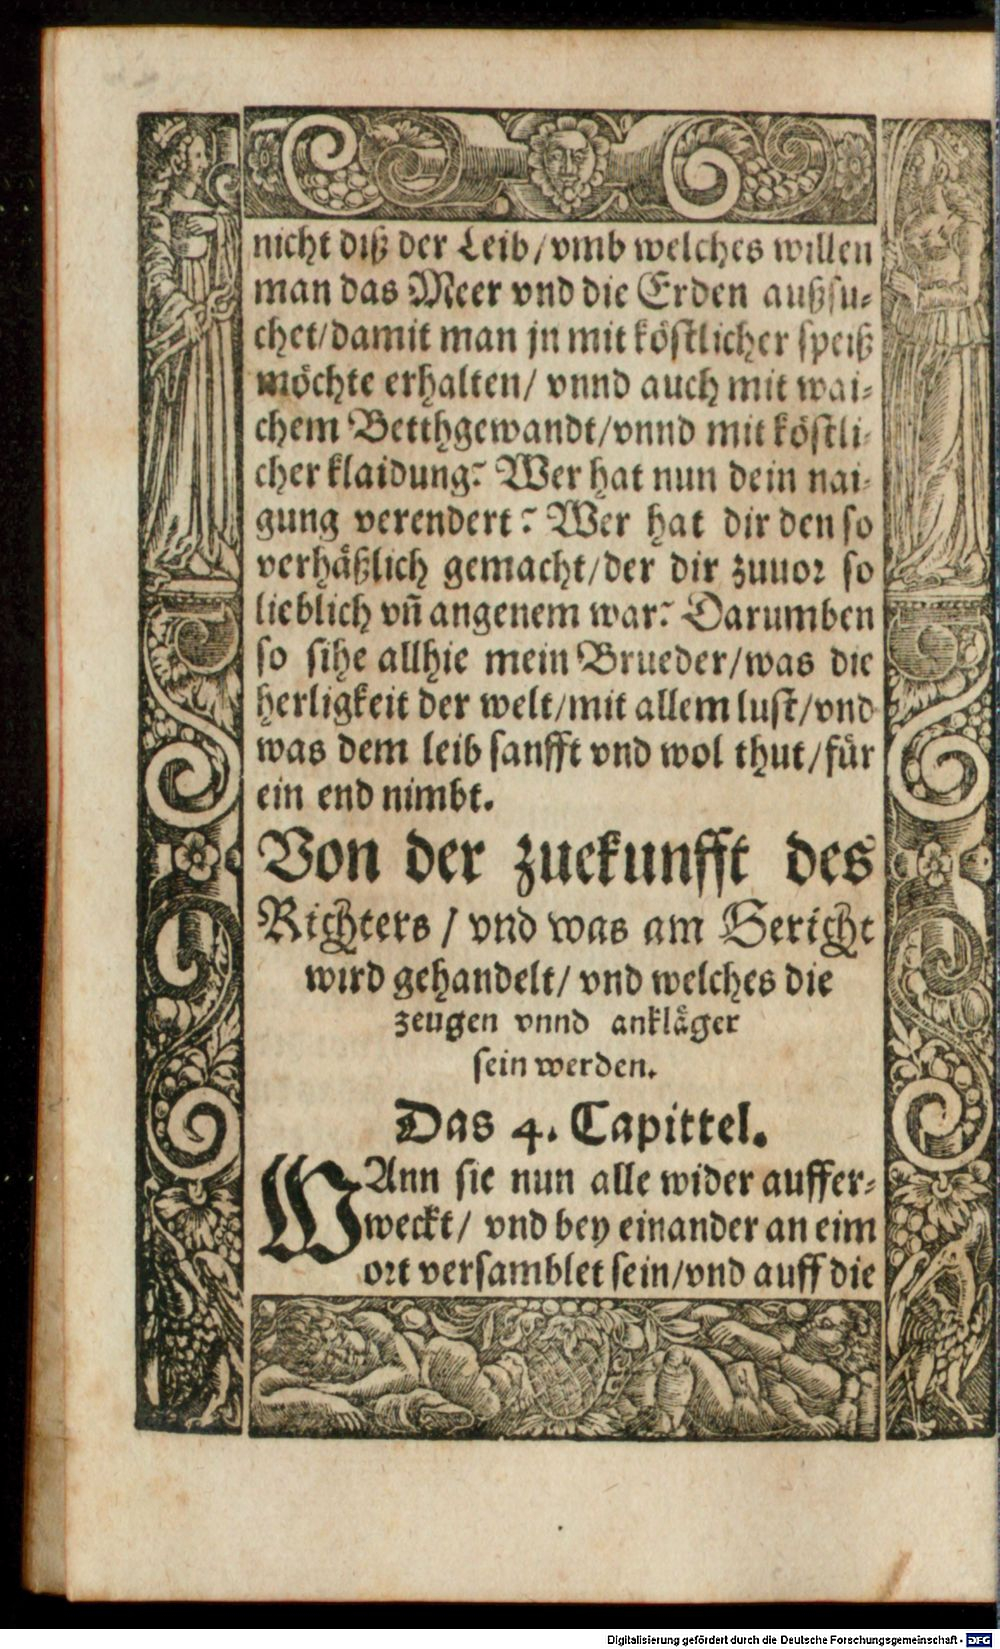 nicht diß der Leib/vmb welches willen
man das Meer vnd die Erden außsu⸗
chet/damit man jn mit köstlicher speiß
möchte erhalten/ vnnd auch mit wai⸗
chem Betthgewandt/vnnd mit köstli⸗
cher klaidung? Wer hat nun dein nai⸗
gung verendert? Wer hat dir den so
verhäßlich gemacht/der dir zuuor so
lieblich vñ angenem war? Darumben
so sihe allhie mein Brueder/was die
herligkeit der welt/mit allem lust/vnd
was dem leib sanfft vnd wol thut/für
ein end nimbt.
Von der zuekunfft des
Richters / vnd was am Gericht
wird gehandelt/ vnd welches die
zeugen vnnd ankläger
sein werden.
Das 4. Capittel.
WAnn sie nun alle wider auffer⸗
weckt/ vnd bey einander an eim
ort versamblet sein/vnd auff die
Digitalisierung gefördert durch die Deutsche Forschungsgemeinschaft - DFG